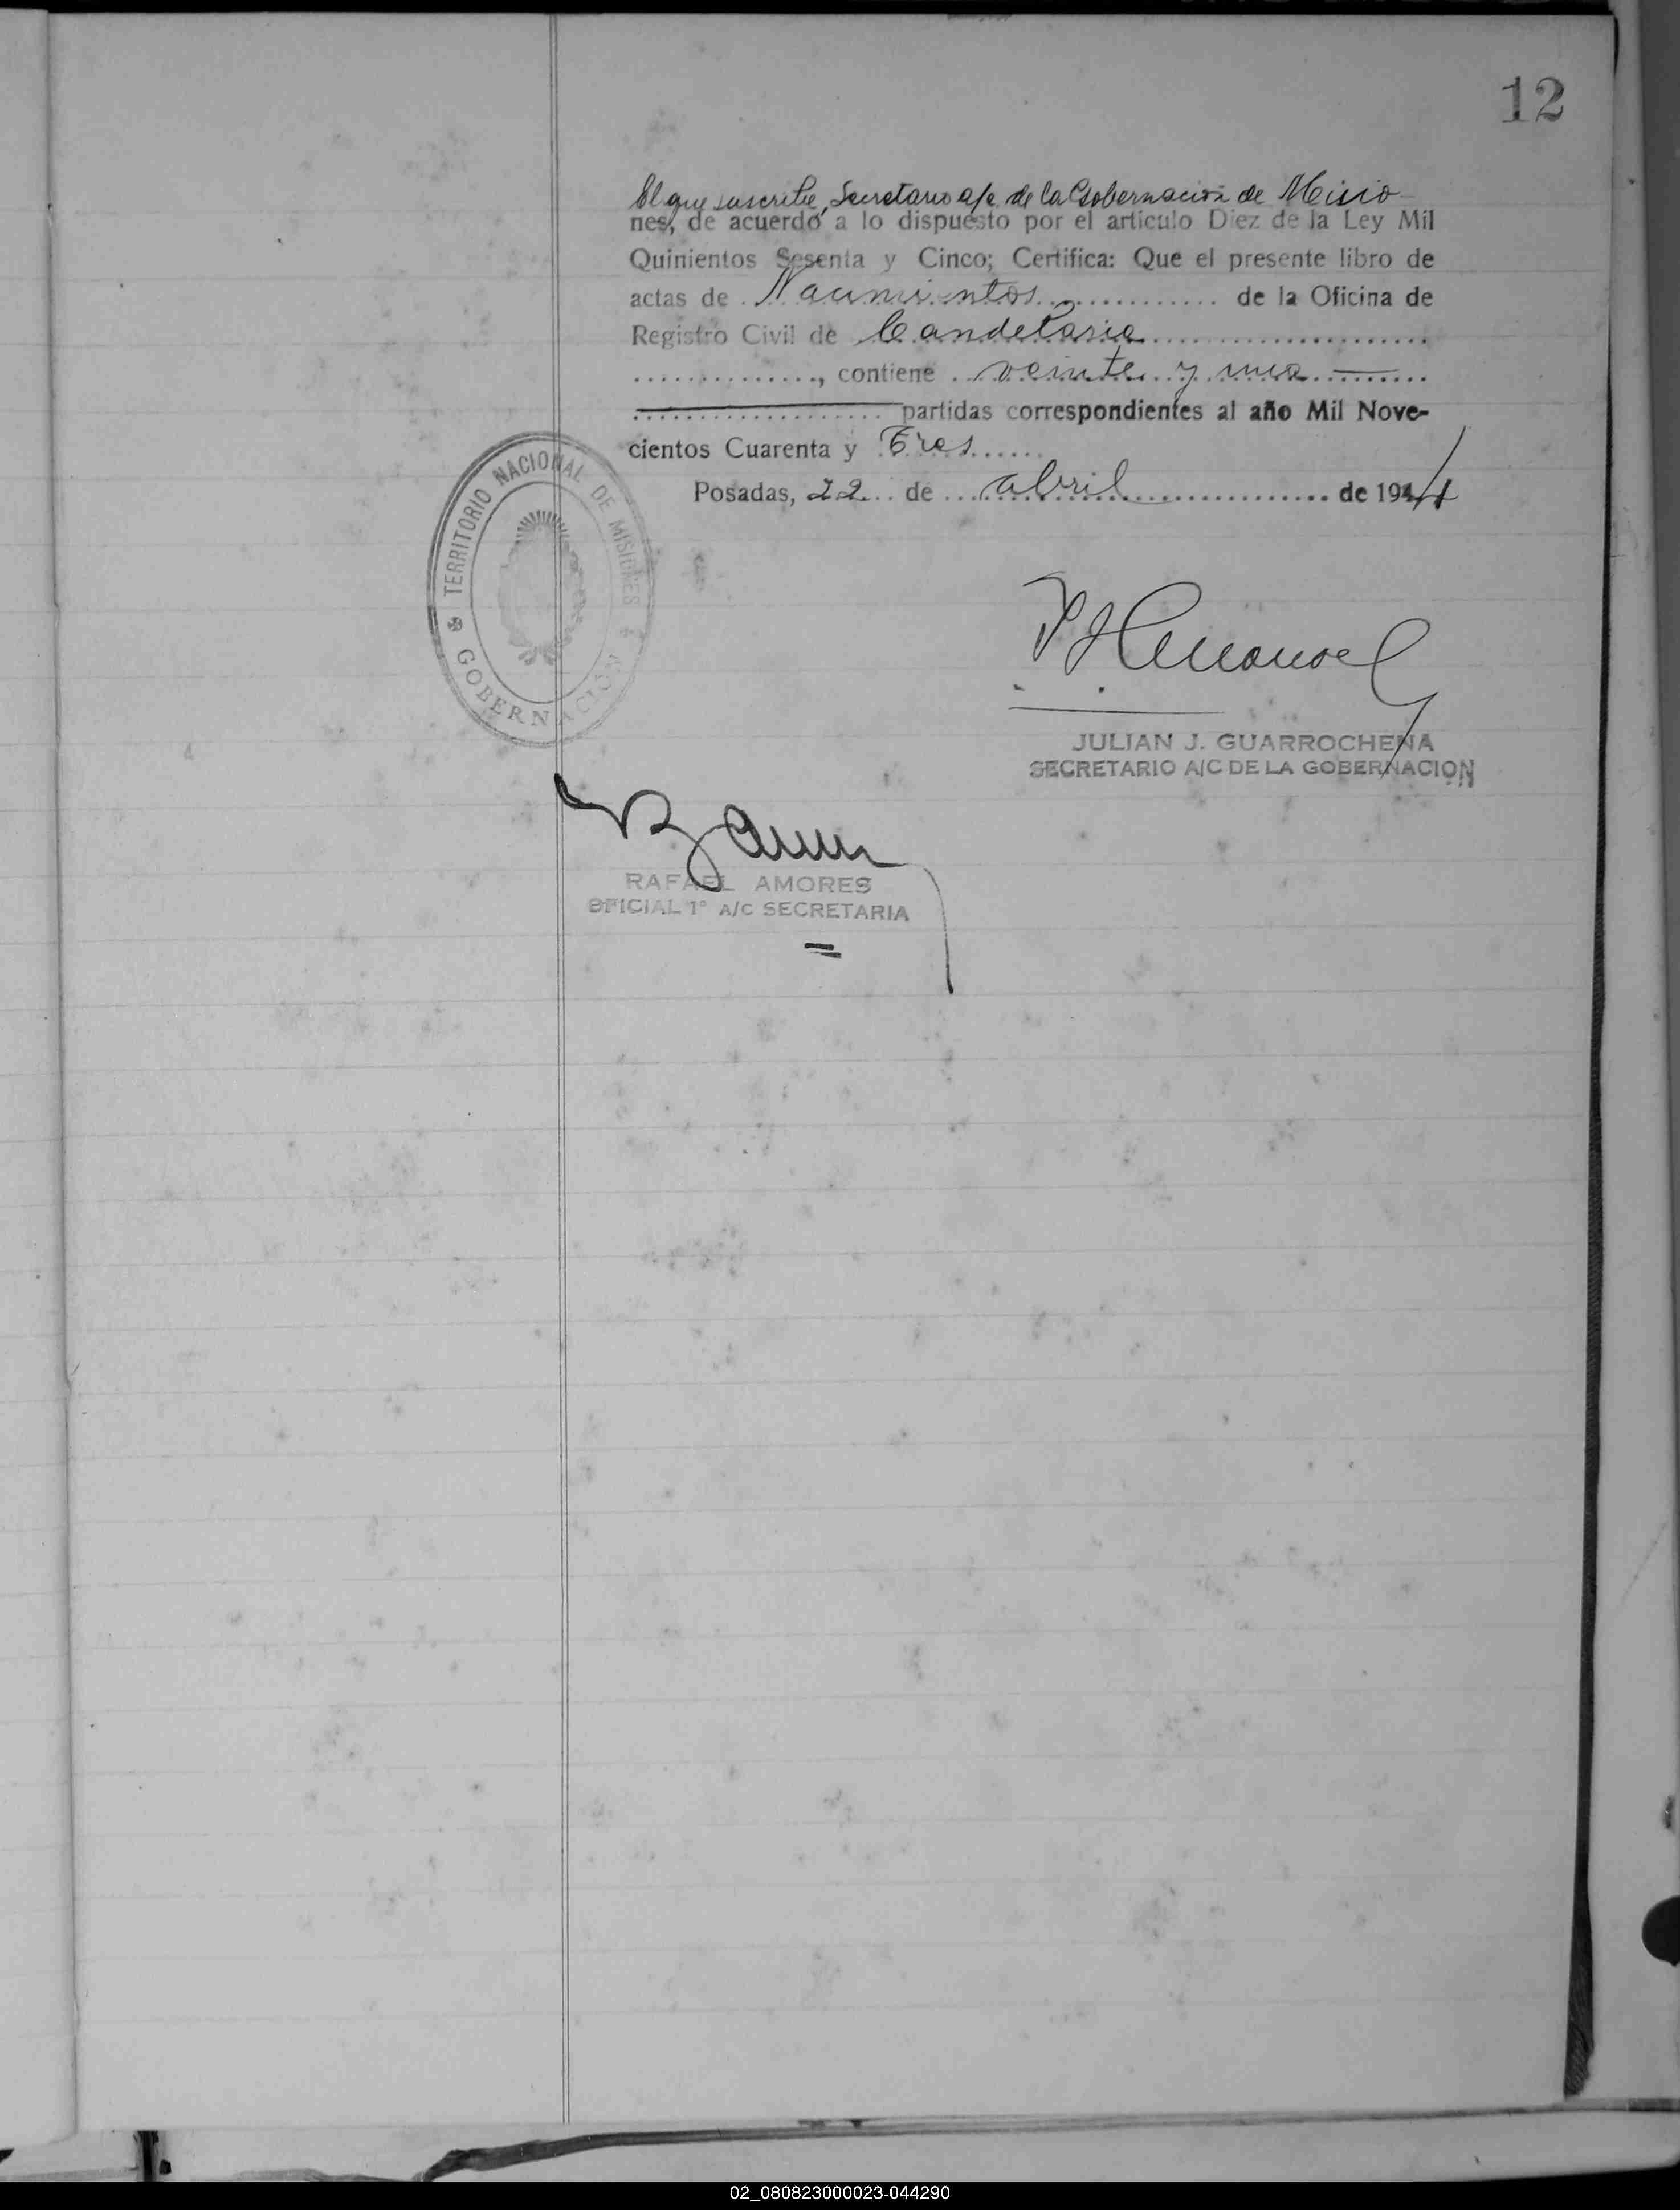 12
El que suscribe, Secretario a/c. de la Gobernación de Misio-
nes, de acuerdo a lo dispuesto por el artículo Diez de la Ley Mil
Quinientos Sesenta y Cinco; Certifica: Que el presente libro de
actas de Nacimientos de la Oficina de
Registro Civil de Candelaria
, contiene veinte y una
partidas correspondientes al año Mil Nove-
cientos Cuarenta y Tres
Posadas, 22 de abril de 1944
TERRITORIO NACIONAL DE MISIONES
GOBERNACIÓN
JULIAN J. GUARROCHENA
SECRETARIO A/C DE LA GOBERNACION
RAFAEL AMORES
OFICIAL 1º A/C SECRETARIA
02_080823000023-044290